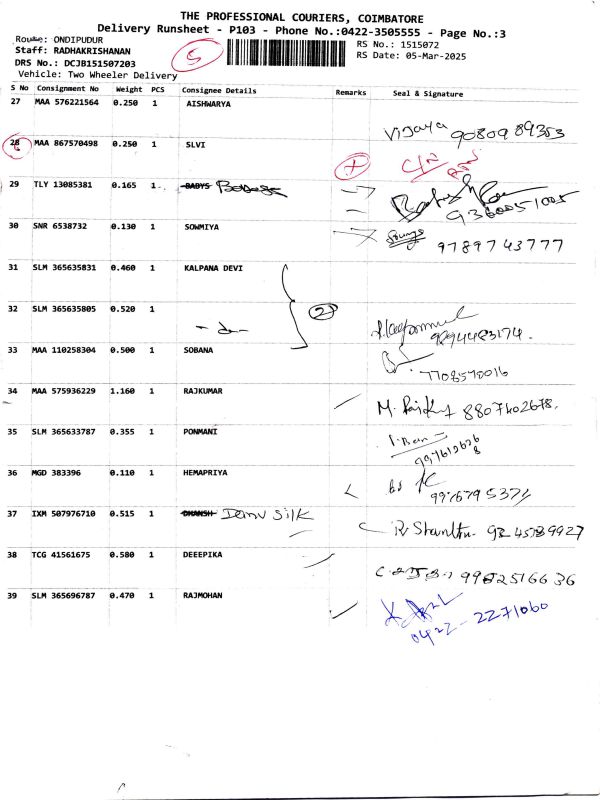 THE PROFESSIONAL COURIERS, COIMBATORE
Delivery Runsheet - P103 - Phone No.:0422-3505555 - Page No.:3
Route: ONDIPUDUR
Staff: RADHAKRISHANAN
DRS No.: DCJB151507203
Vehicle: Two Wheeler Delivery
5
RS No.: 1515072
RS Date: 05-Mar-2025
S No Consignment No Weight PCS Consignee Details Remarks Seal & Signature
27 MAA 576221564 0.250 1 AISHWARYA
Vijaya 9080989353
28 MAA 867570498 0.250 1 SLVI
29 TLY 13085381 0.165 1 BABYS
9360051005
30 SNR 6538732 0.130 1 SOWMIYA
9789743777
31 SLM 365635831 0.460 1 KALPANA DEVI
32 SLM 365635805 0.520 1
- do -
2
9894483174.
33 MAA 110258304 0.500 1 SOBANA
7708570016
34 MAA 575936229 1.160 1 RAJKUMAR
8807402678.
35 SLM 365633787 0.355 1 PONMANI
36 MGD 383396 0.110 1 HEMAPRIYA
37 IXM 507976710 0.515 1 DHANSH Silk
38 TCG 41561675 0.580 1 DEEEPIKA
39 SLM 365696787 0.470 1 RAJMOHAN
0422-2271060